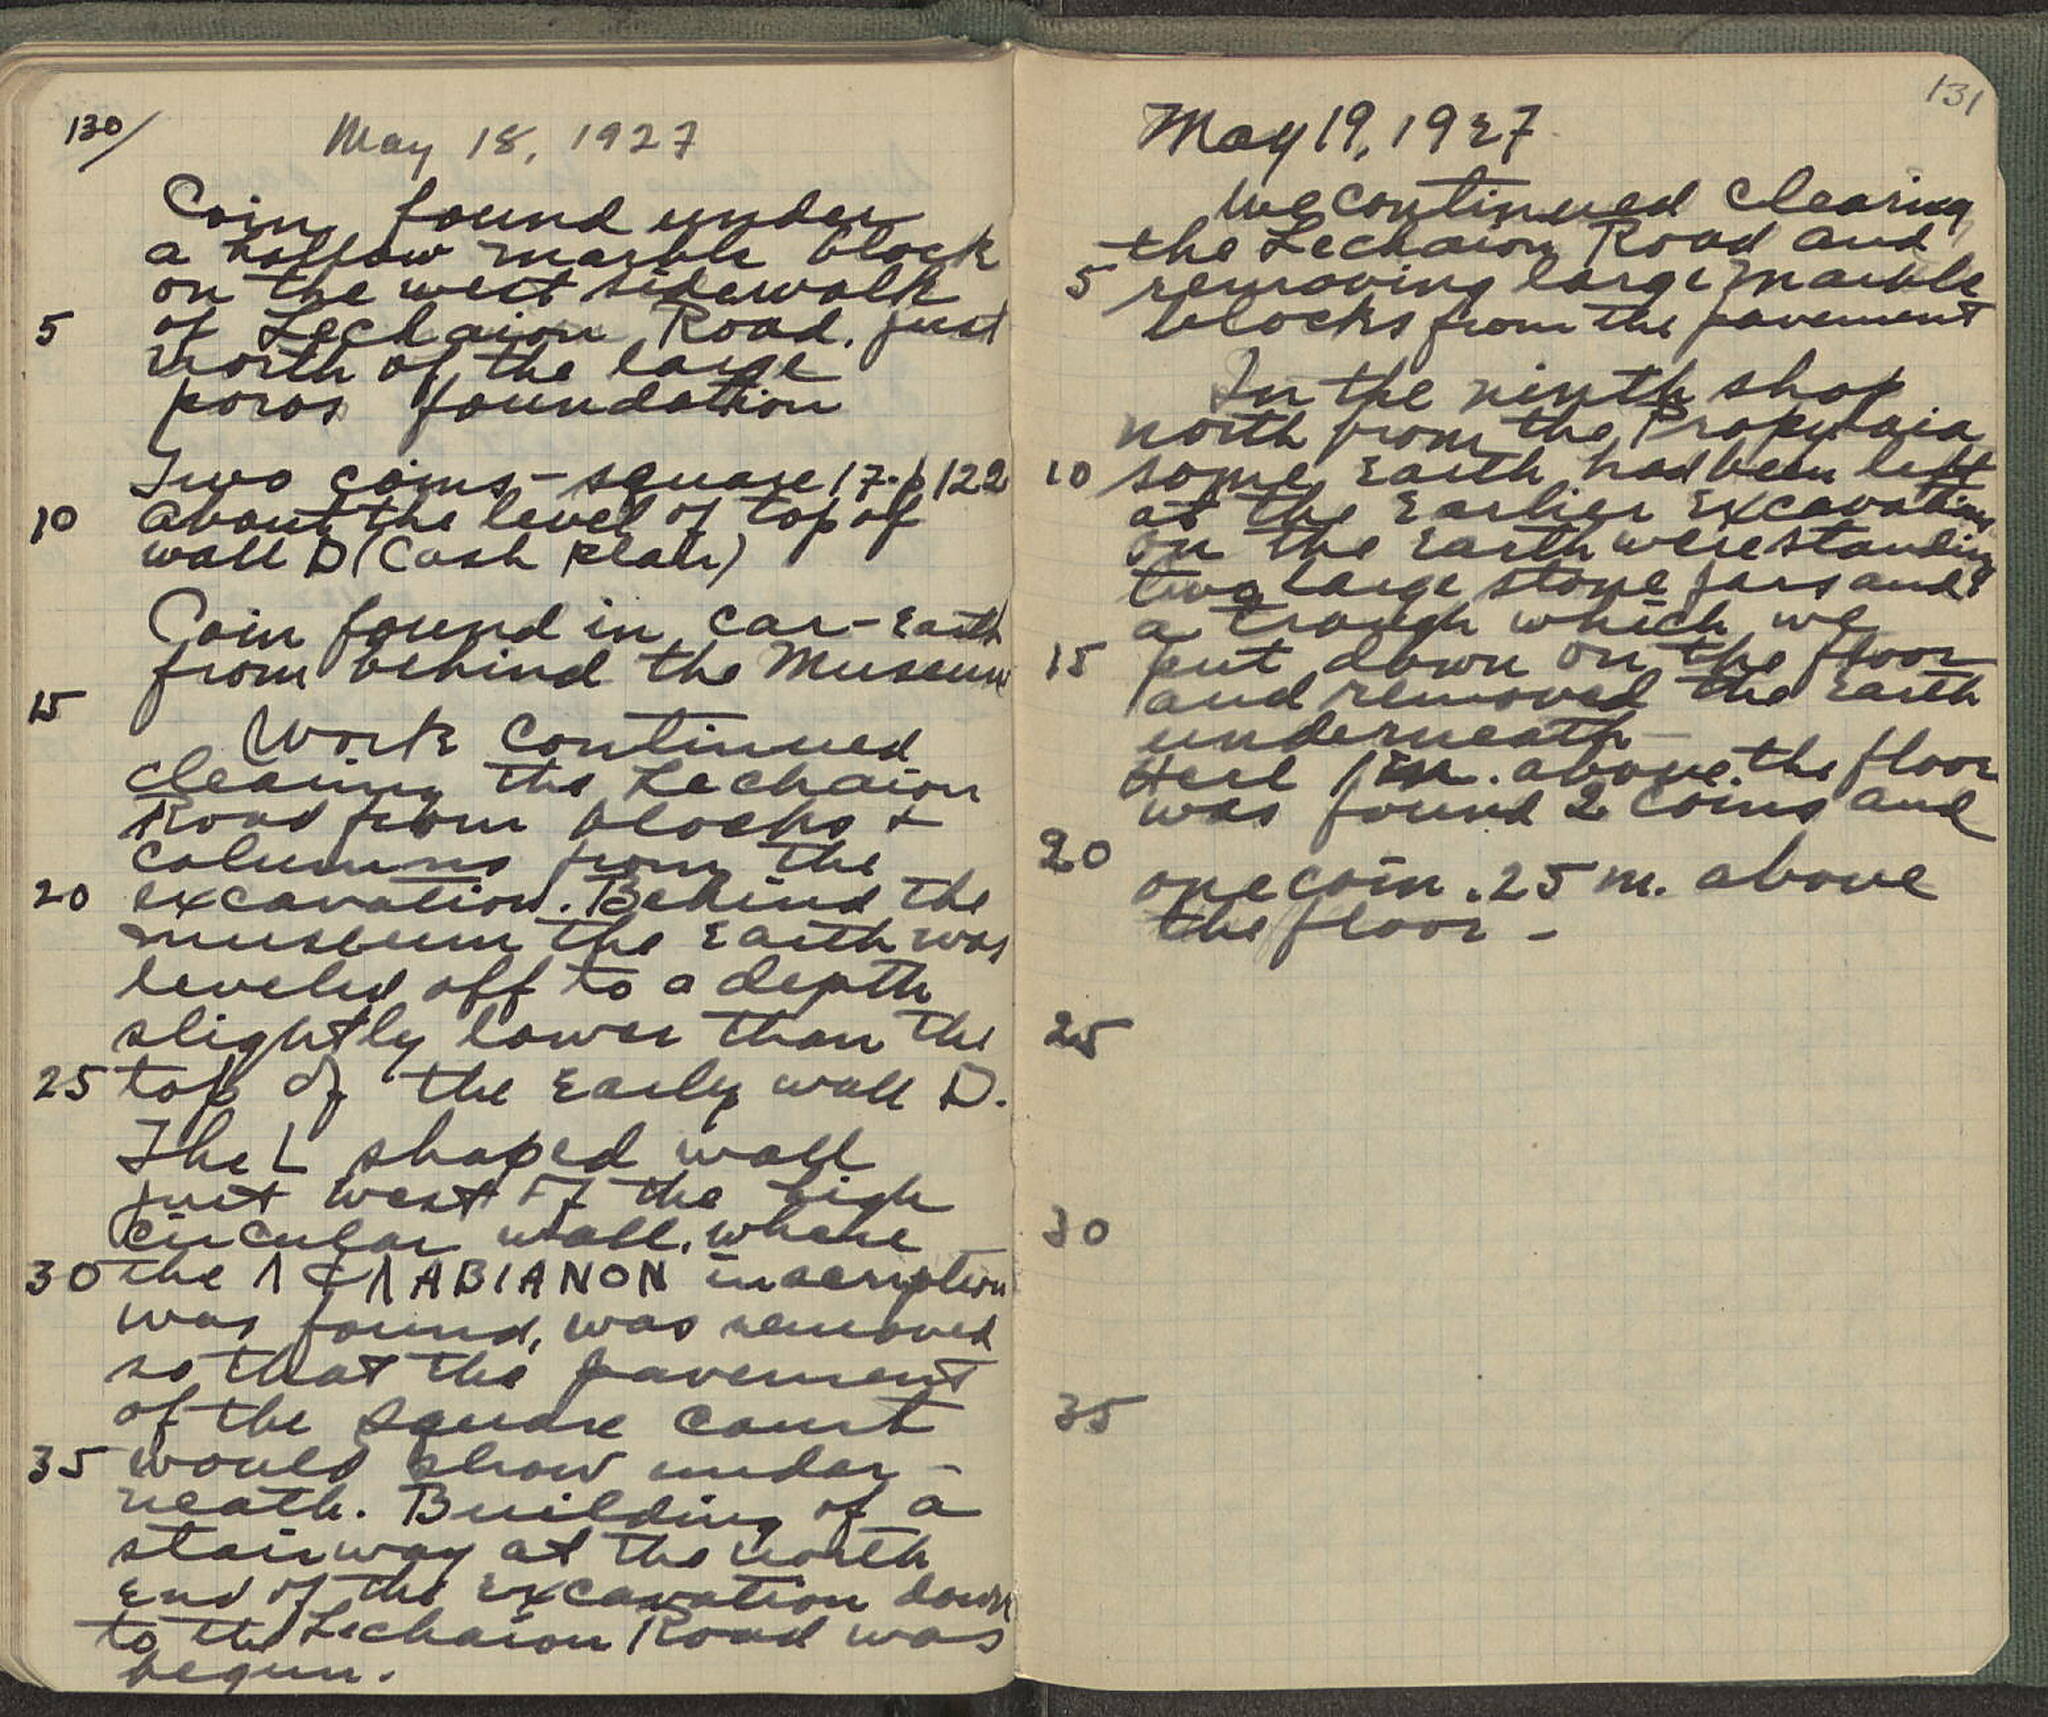 130/
May 18, 1927
Coin found under
a hollow marble block
on the west sidewalk
5 of Lechaion Road. just
north of the large
poros foundation
Two coins - square 17. p 122
10 about the level of top of
wall D (Cash plan)
Coin found in car-Earth
from behind the Museum
15
Work continued
clearing the Lechaion
Road from blocks +
columns from the
20 excavation. Behind the
museum the Earth was
leveled off to a depth
slightly lower than the
25 top of the Early wall D.
The L shaped wall
just west of the high
circular wall, where
30 the ABIANON inscription
was found, was removed
so that the pavement
of the square court
35 would show under-
neath. Building of a
stairway at the north
End of the Excavation down
to the Lechaion Road was
begun.
131
May 19, 1927
We continued clearing
the Lechaion Road and
5 removing large marble
blocks from the pavement
In the ninth shop
north from the Propylaia
10 some Earth had been left
at the Earlier Excavations
on the Earth were standing
two large stone jars and
a trough which we
15 put down on the floor
and removed the Earth
underneath -
Here 1 m. above the floor
was found 2 coins and
20
one coin .25 m. above
the floor -
25
30
35